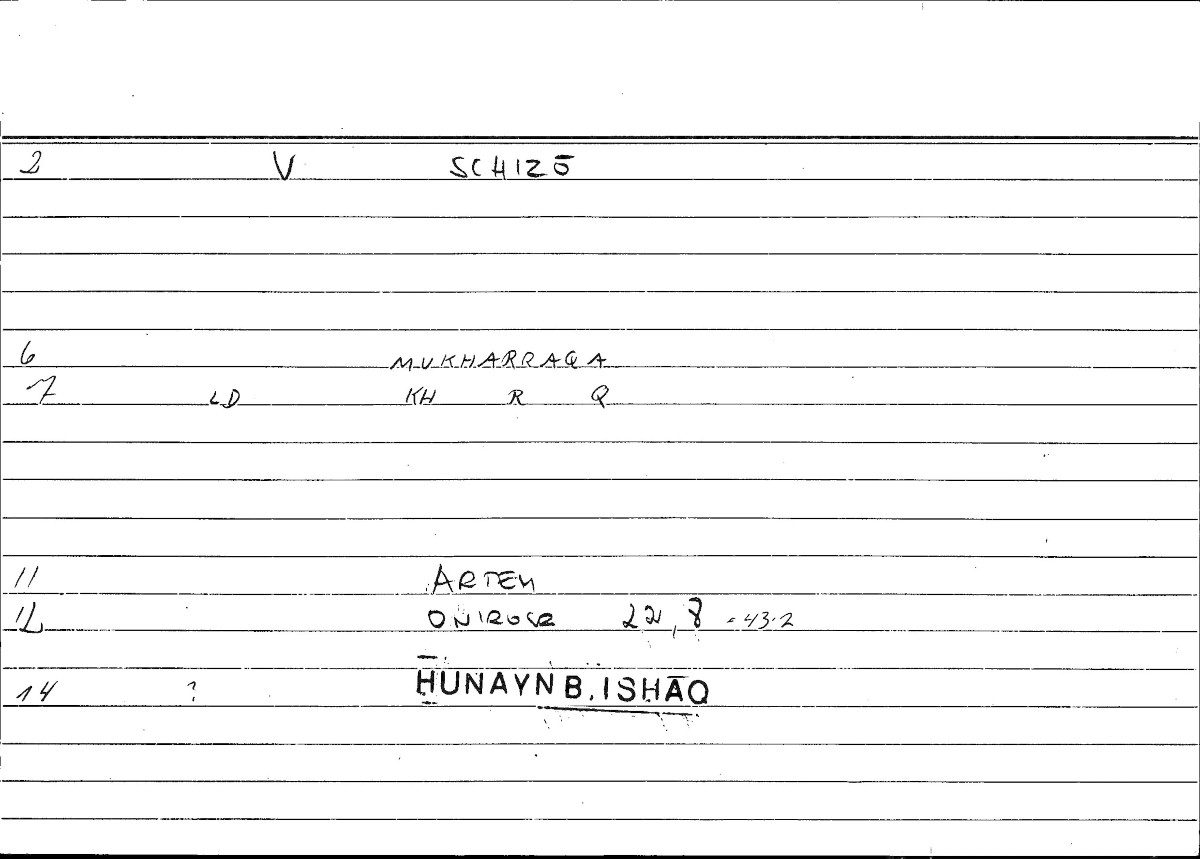 2 V SCHIZŌ
6 MUKHARRAQA
7 LD KH R Q
11 ARTEM
12 ONIROCR 22,8 = 43.2
14 ? ḤUNAYN B. ISḤĀQ